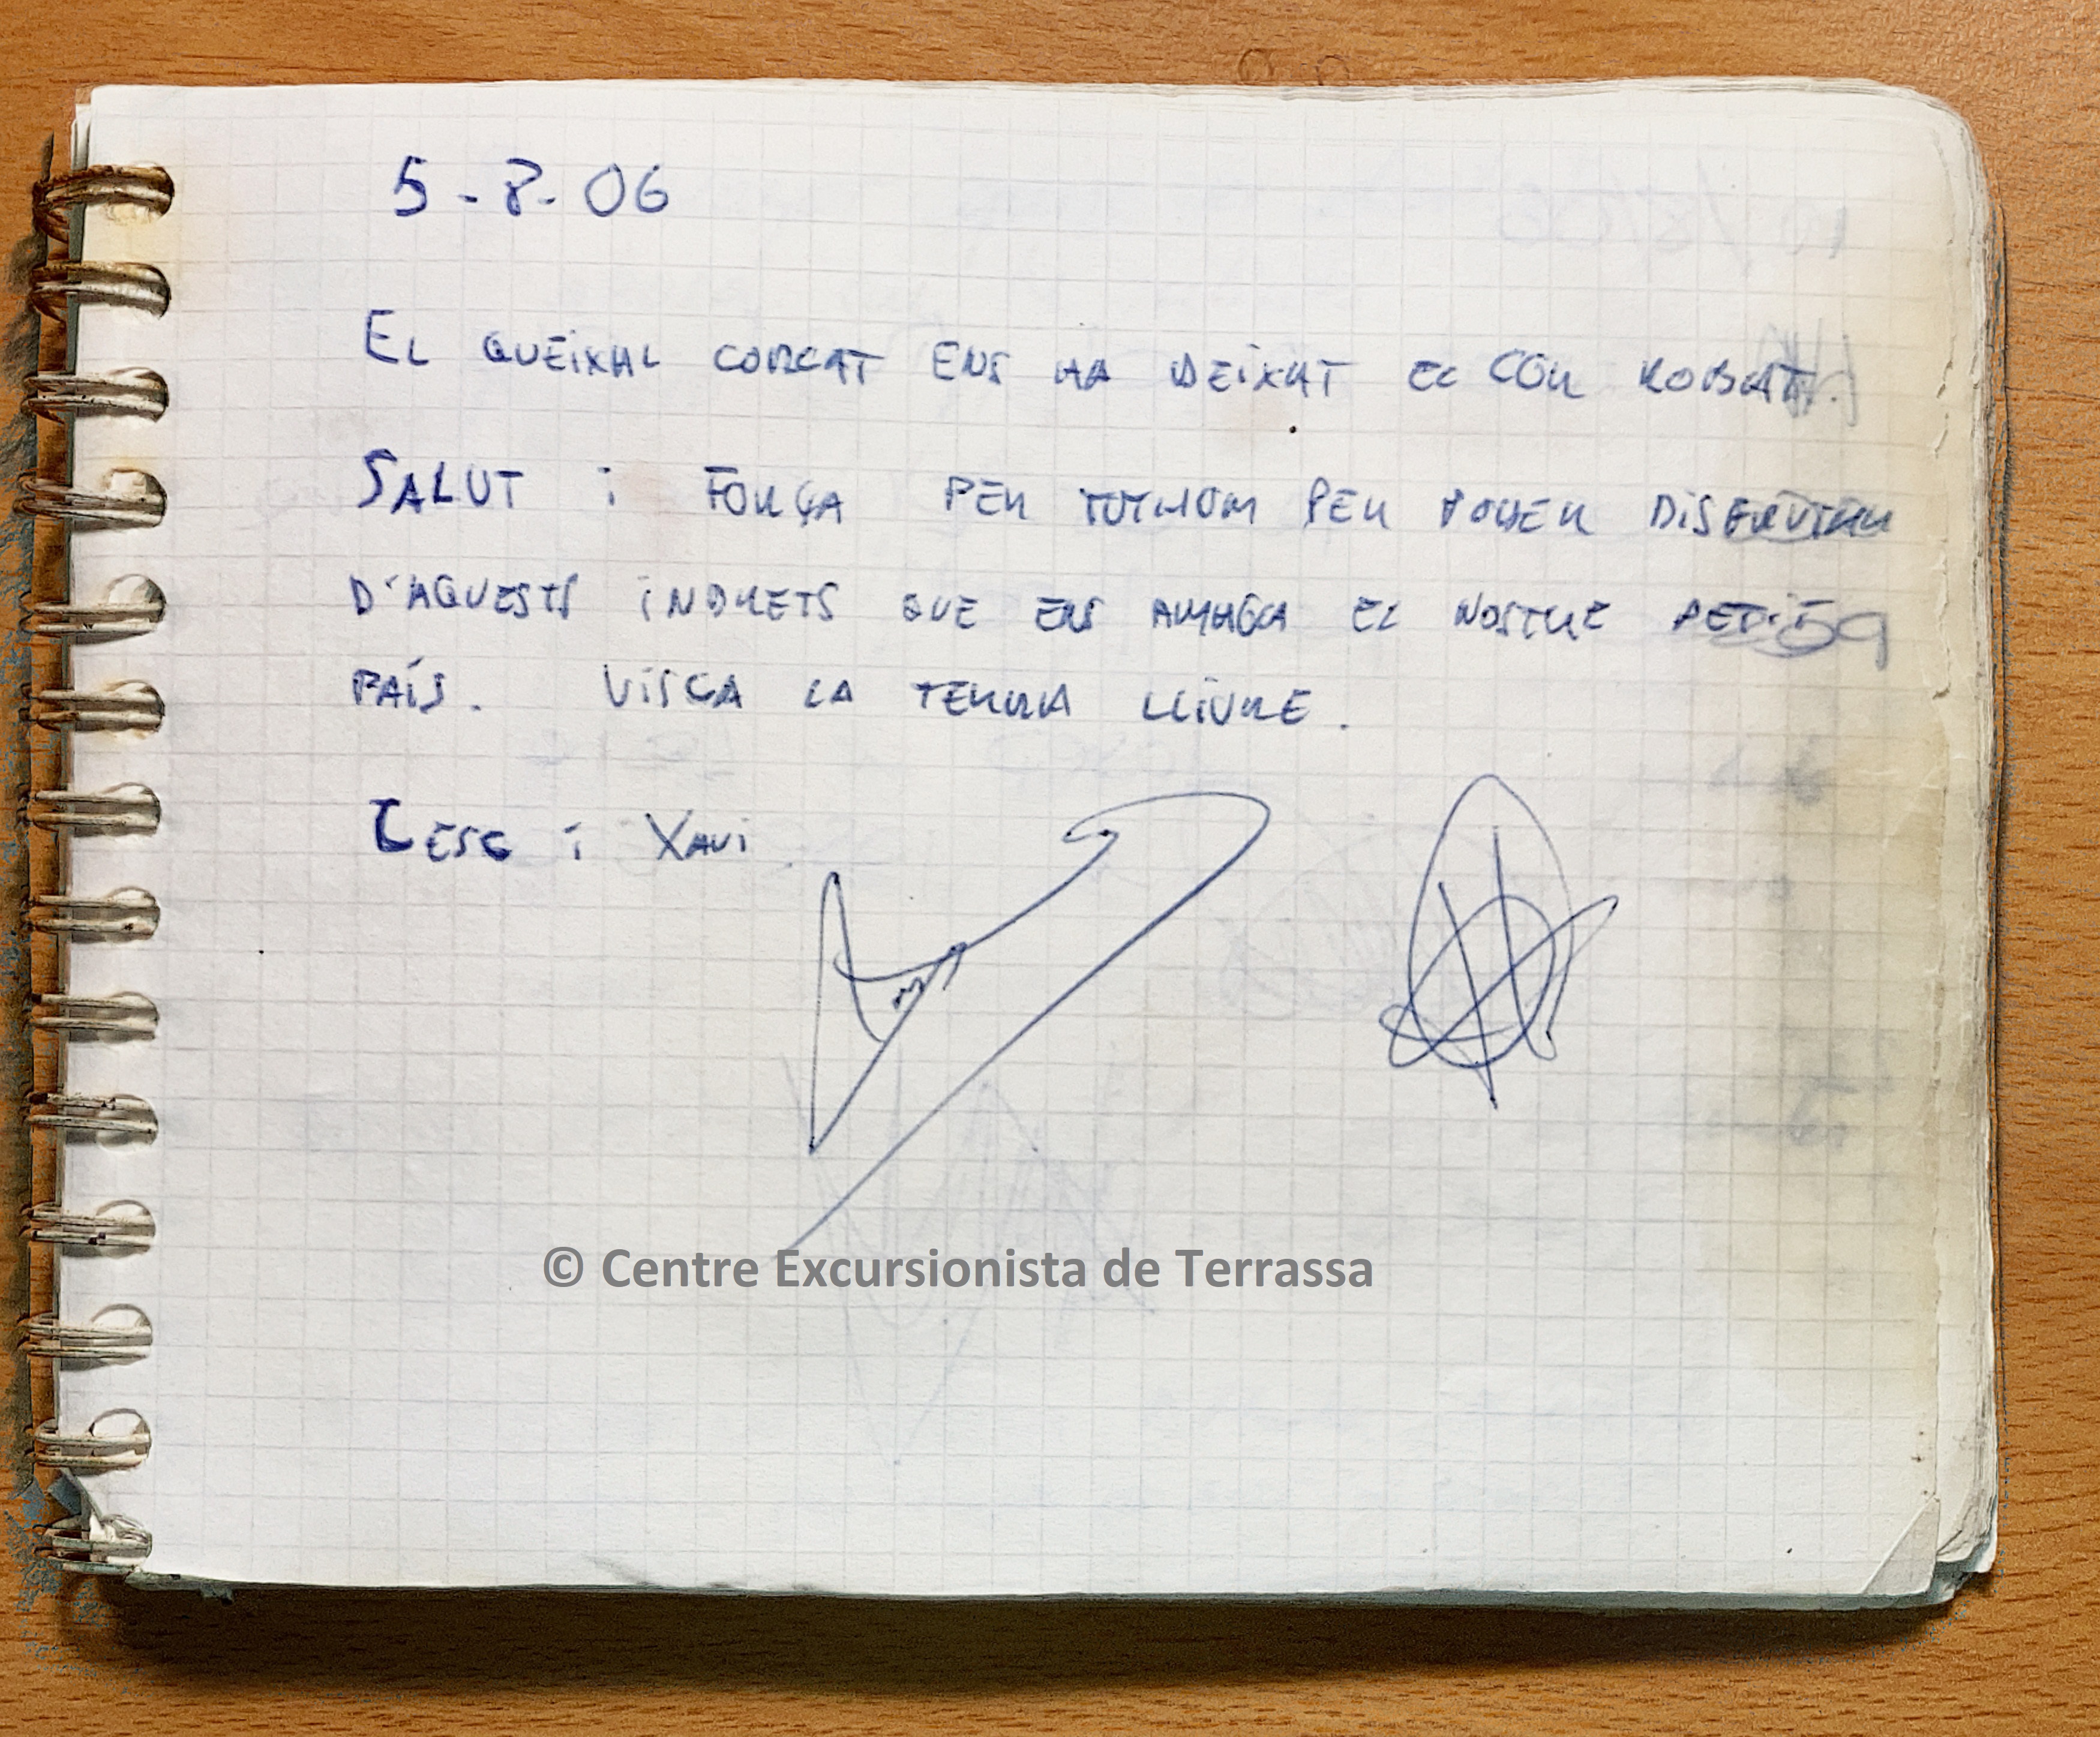 5-8-06
EL QUEIXAL CORCAT ENS HA DEIXAT EL COR ROBAT.
SALUT i FORÇA PER TOTHOM PER PODER DISFRUTAR
D'AQUESTS INDRETS QUE ENS AMAGA EL NOSTRE PETIT
PAÍS. VISCA LA TERRA LLIURE.
CESC i XAVI
© Centre Excursionista de Terrassa